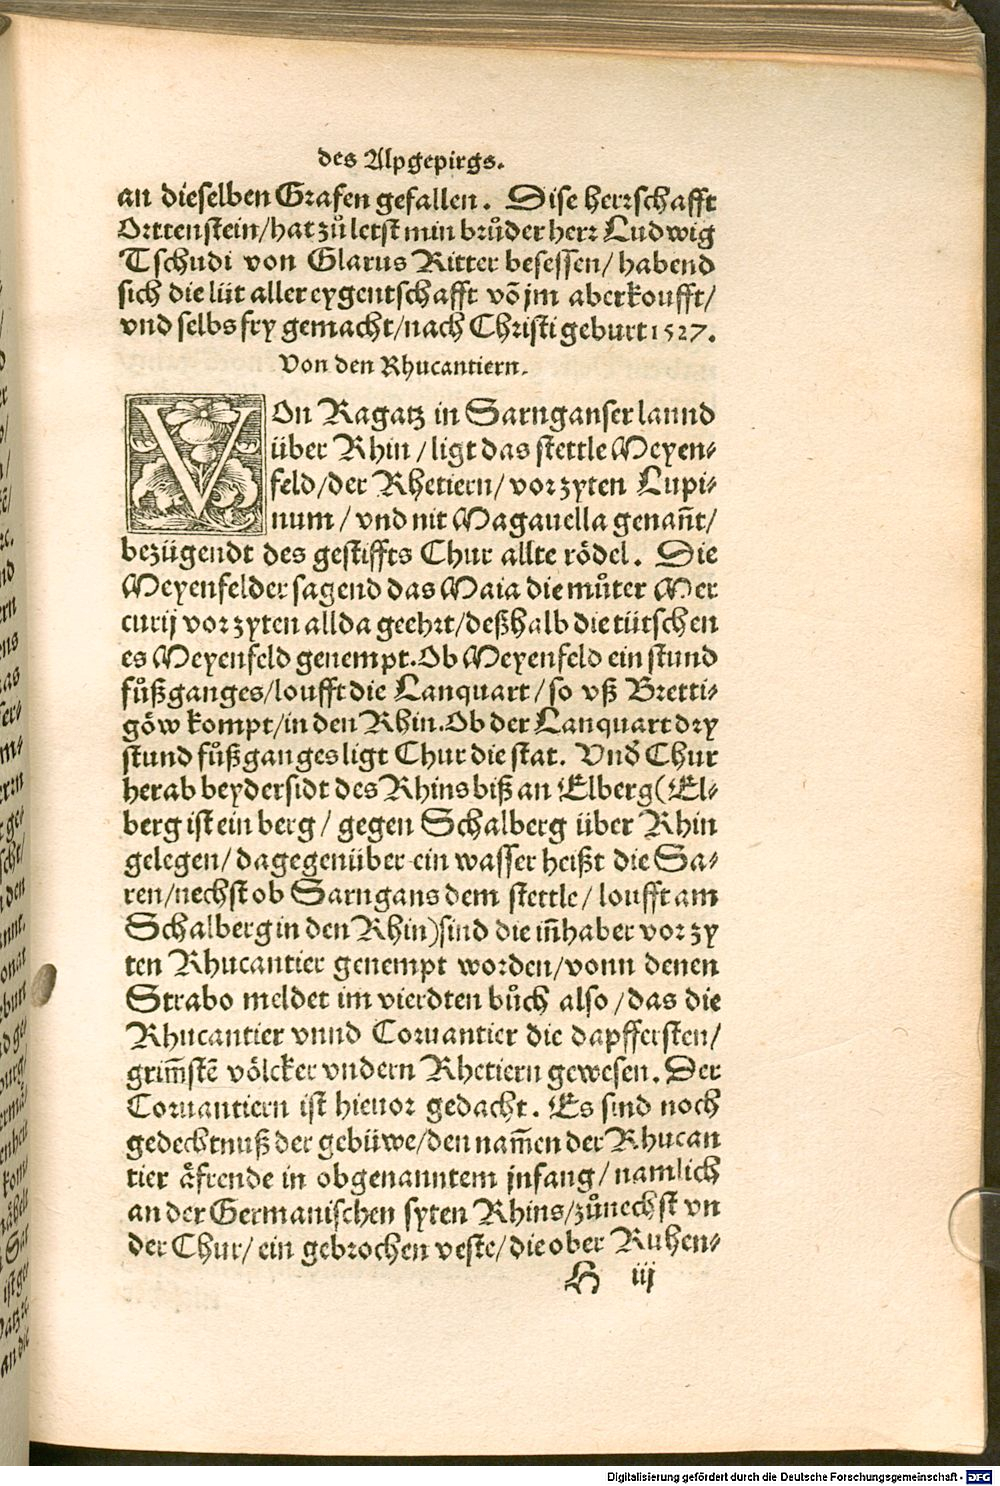 des Alpgepirgs.
an dieselben Grafen gefallen. Dise herrschafft
Orttenstein/hat zů letst min brůder herr Ludwig
Tschudi von Glarus Ritter besessen/ habend
sich die lüt aller eygentschafft võ jm aberkoufft/
vnd selbs fry gemacht/nach Christi geburt 1527.
Von den Rhucantiern.
VOn Ragatz in Sarnganser lannd
über Rhin /ligt das stettle Meyen-
feld/der Rhetiern/ vor zyten Lupi-
num / vnd nit Magauella genañt/
bezügendt des gestiffts Chur allte rödel. Die
Meyenfelder sagend das Maia die můter Mer
curij vor zyten allda geehrt/deßhalb die tütschen
es Meyenfeld genempt. Ob Meyenfeld ein stund
fůßganges/loufft die Lanquart/so vß Bretti-
göw kompt/in den Rhin. Ob der Lanquart dry
stund fůßganges ligt Chur die stat. Vnd Chur
herab beydersidt des Rhins biß an Elberg (El-
berg ist ein berg/ gegen Schalberg über Rhin
gelegen/ dagegenüber ein wasser heißt die Sa-
ren/nechst ob Sarngans dem stettle/ loufft am
Schalberg in den Rhin)sind die iñhaber vor zy
ten Rhucantier genempt worden/vonn denen
Strabo meldet im vierdten bůch also/das die
Rhucantier vnnd Coruantier die dapffersten/
grim̃stẽ völcker vndern Rhetiern gewesen. Der
Coruantiern ist hieuor gedacht. Es sind noch
gedechtnuß der gebüwe/den nam̃en der Rhucan
tier äfrende in obgenanntem jnfang/namlich
an der Germanischen syten Rhins/zůnechst vn
der Chur/ ein gebrochen veste/die ober Ruhen-
H iij
Digitalisierung gefördert durch die Deutsche Forschungsgemeinschaft - DFG